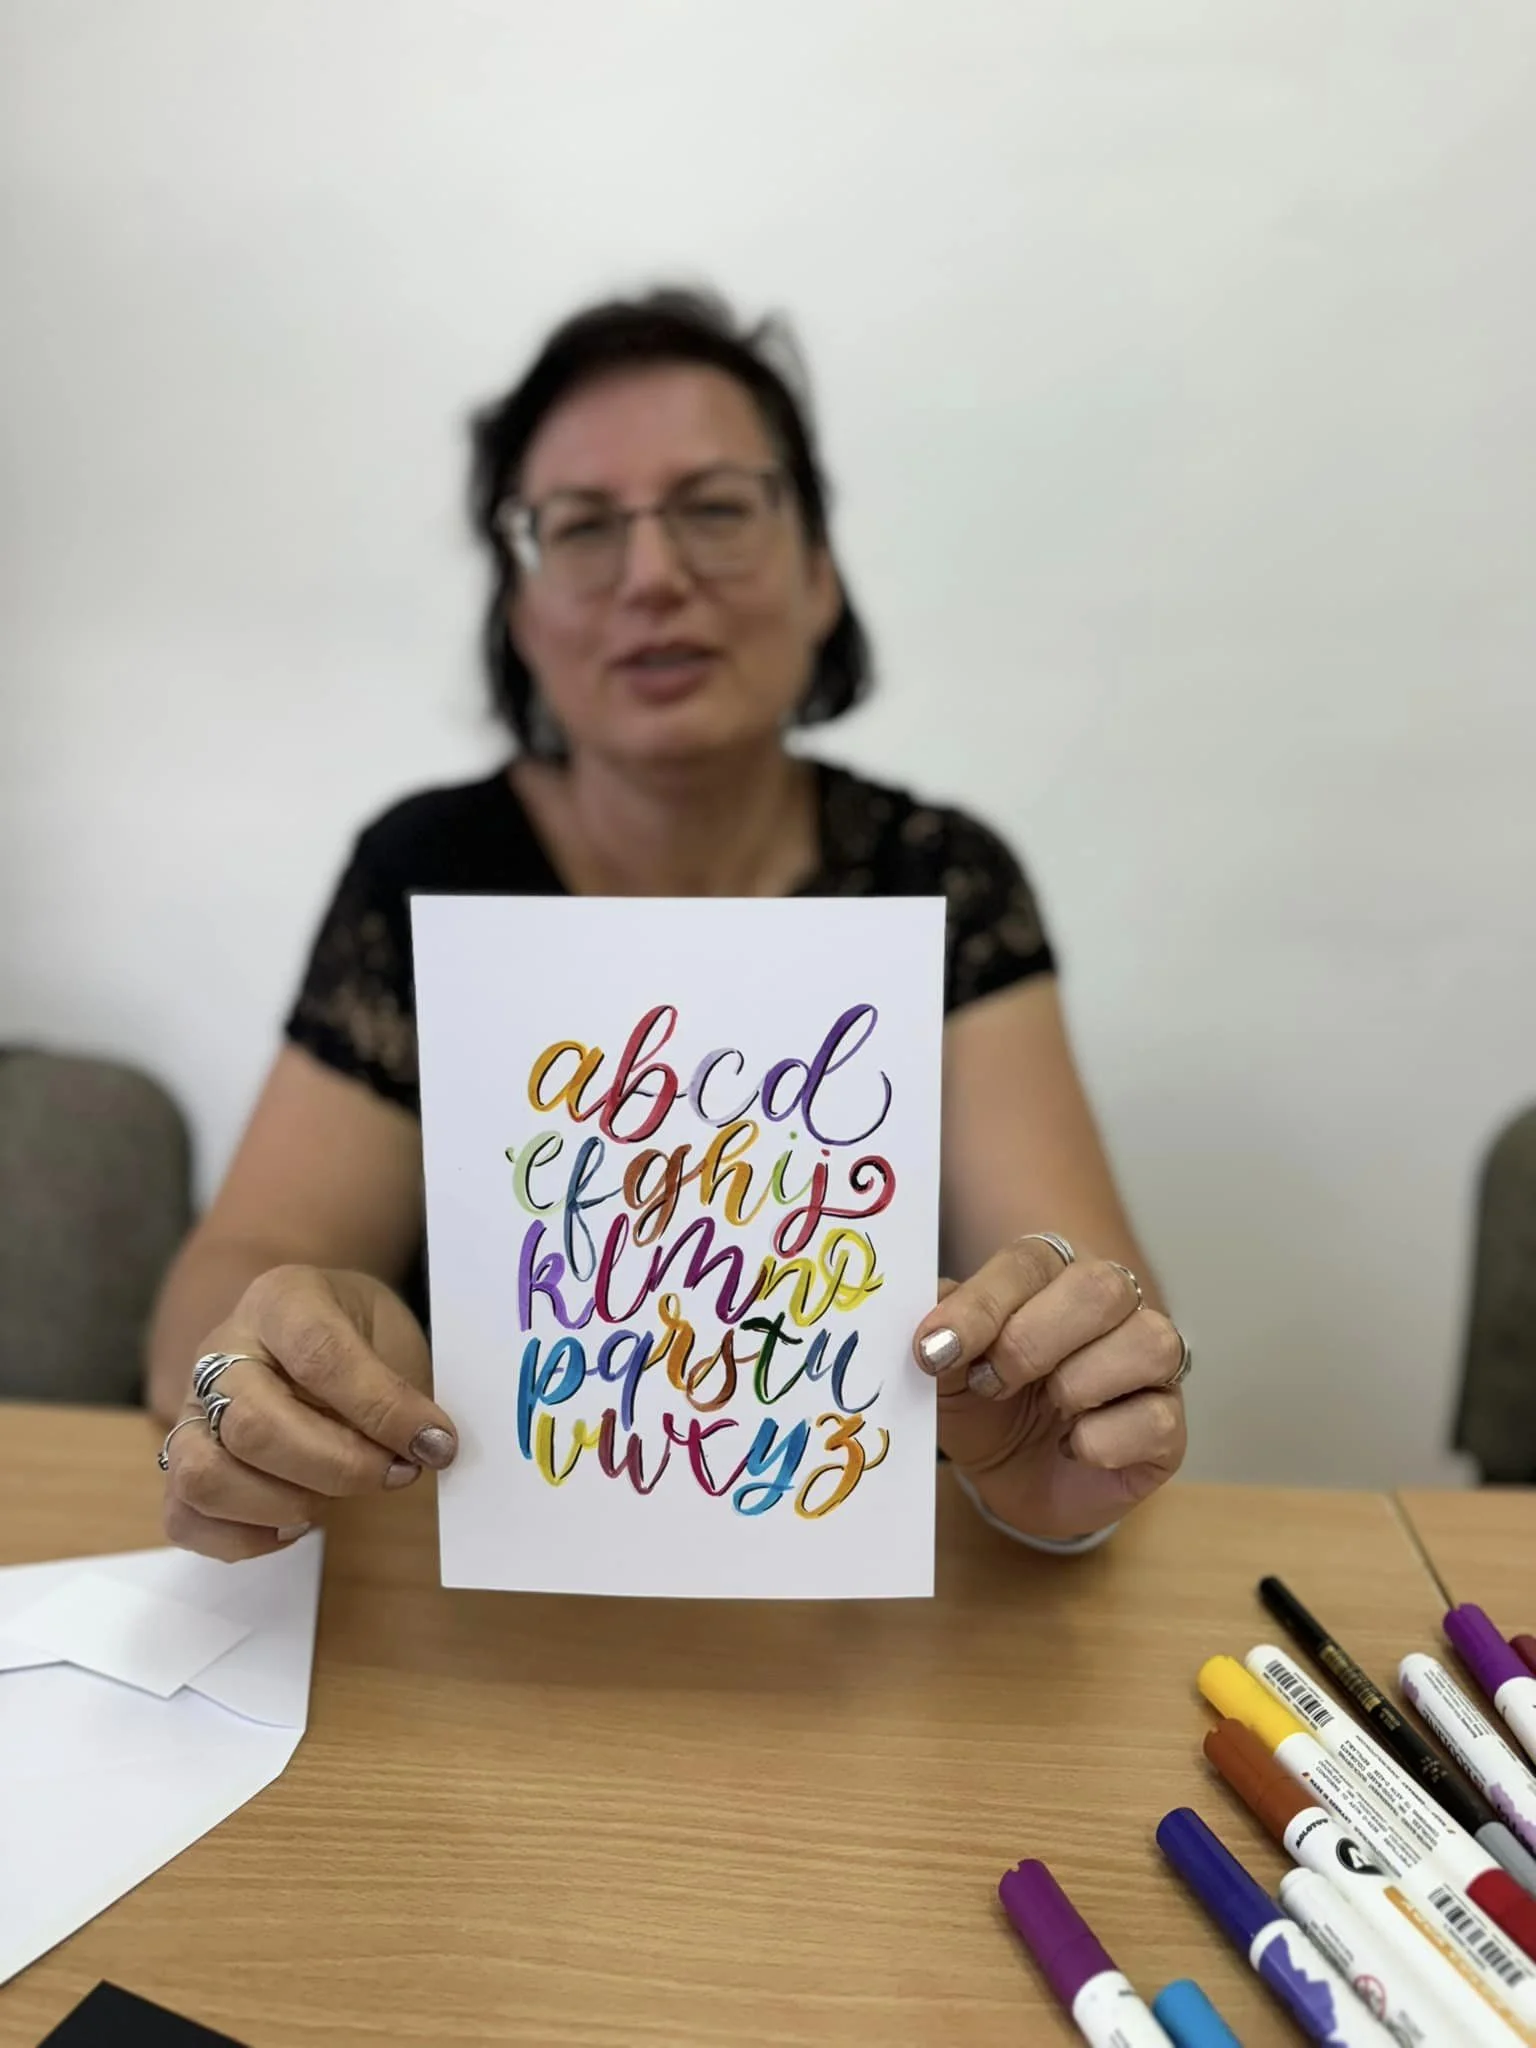 abcd
efghij
klmno
pqrstu
vwxyz
MOLOTOW